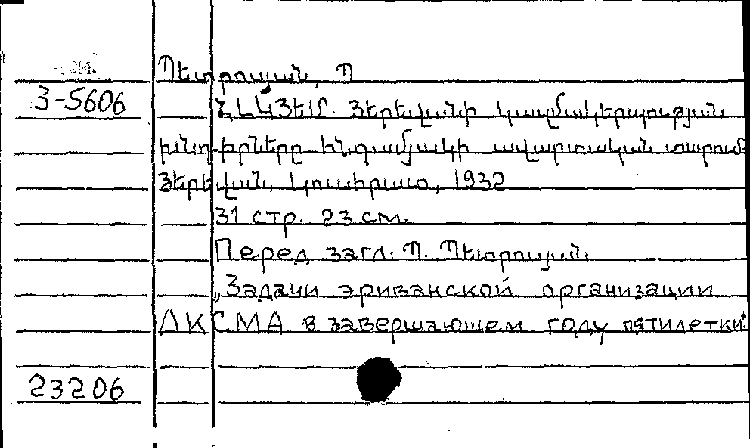 Պետրոսյան, Պ
3-5606
ՀԼԿՅԵՄ Յերեվանի կազմակերպության
խնդիրները հնգամյակի ավարտական տարում
Յերեվան, Կուսհրատ, 1932
31 стр. 23 см.
Перед загл. Պ. Պետրոսյան.
„Задачи эриванской организации
ЛКСМА в завершающем году пятилетки"
23206